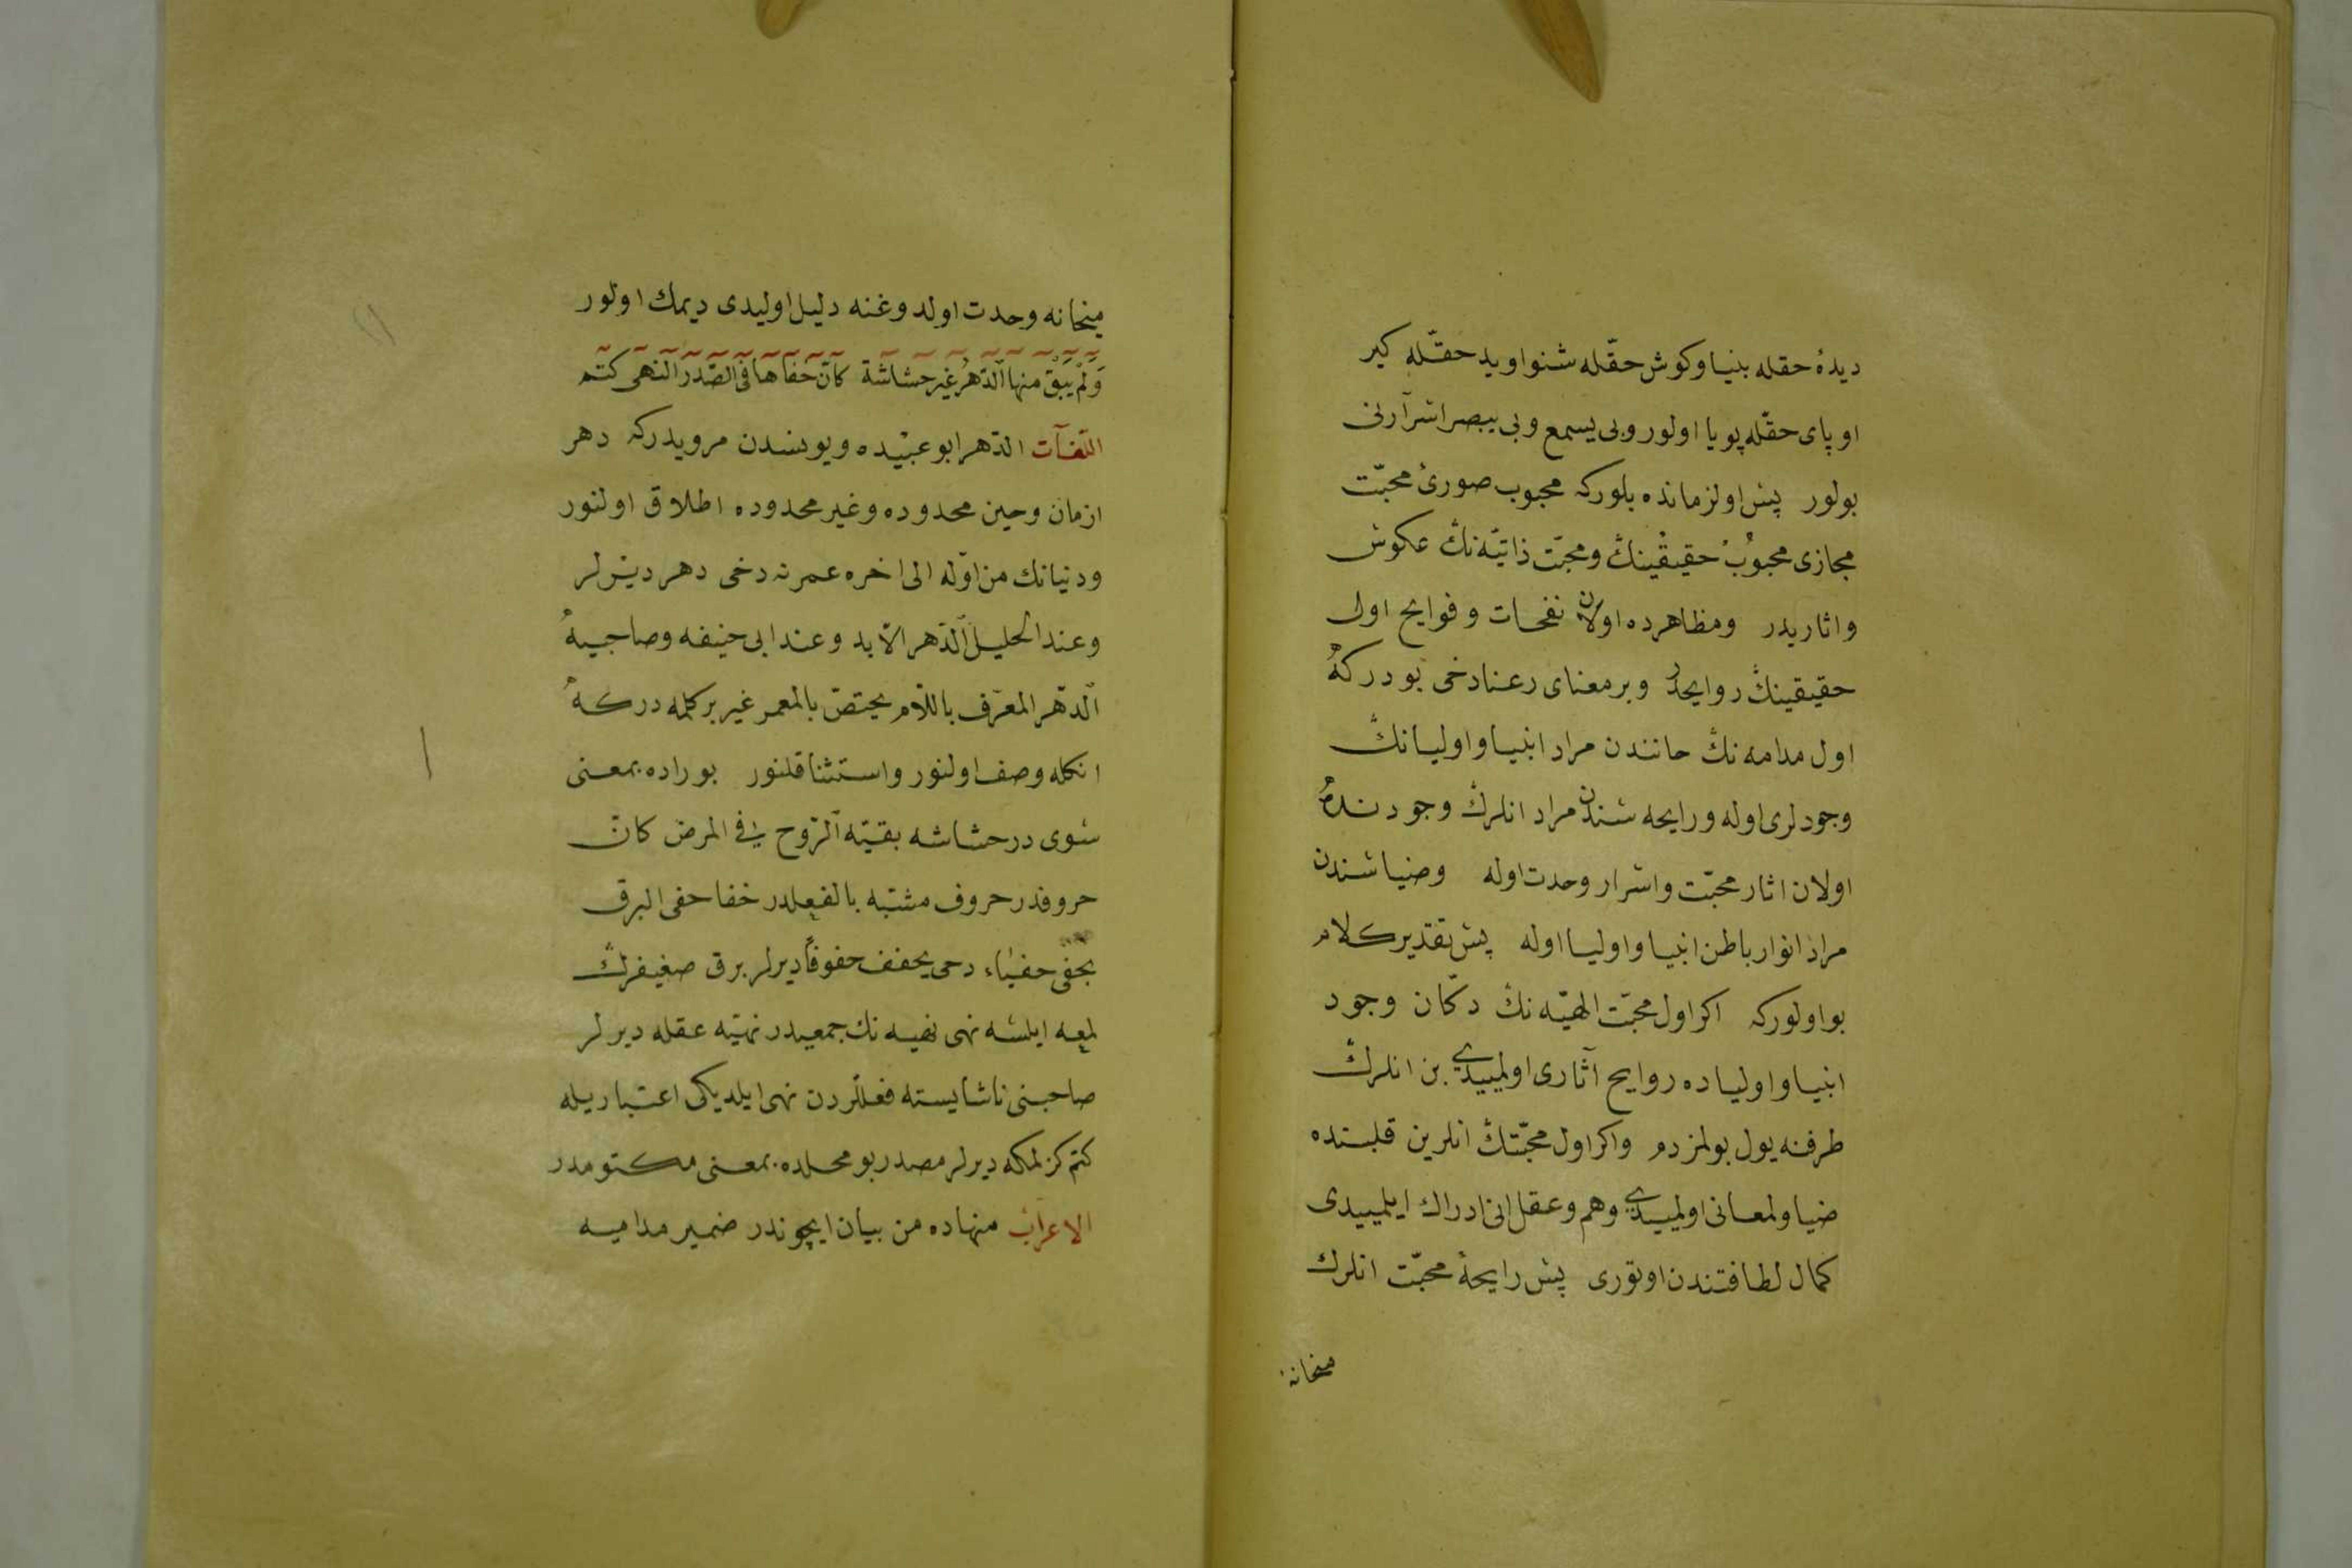 دیدهٔ حقله بنیا وکوش حقّله شنوا وید حقّله کیر
او پای حقّله پویا اولور وبی یسمع وبی یبصر اسرارنی
بولور پس اولزمانده بلورکه محبوب صوریٔ محبّت
مجازی محبوبُ حقیقینڭ ومحبّت ذاتیّه نڭ عکوس
واثاریدر ومظاهرده اولان نفحات و فوایح اول
حقیقینڭ روایحدر وبر معنای رعنا دخی بودرکه
اول مدامه نڭ حانندن مراد انبیا و اولیانڭ
وجودلری اوله ورایحه سندن مراد انلرڭ وجودنده
اولان اثار محبّت واسرار وحدت اوله وضیاسندن
مراد انوار باطن انبیا واولیا اوله پس تقدیر کلام
بو اولورکه اکر اول محبّت الهیّه نڭ دکّان وجود
انبیا و اولیاده روایح آثاری اولمیدی بن انلرڭ
طرفنه یول بولمزدم واکر اول محبّتڭ انلرین قلبنده
ضیا ولمعانی اولمیدی وهم وعقل انی ادراك ایلمیدی
کمال لطافتندن اوتوری پس رایحهٔ محبّت انلرك
میخانهٔ
میخانه وحدت اولدوغنه دلیل اولیدی دیمك اولور
وَلَمْ یَبْقَ منها الدّهرُ غیر حشاشة کانّ خفاها فی الصّدر النهی کتم
اللّغات الدّهر ابو عبیده ویونسدن مرویدرکه دهر
ازمان وحین محدوده وغیر محدوده اطلاق اولنور
ودنیانك من اوّله الی اخره عمرنه دخی دهر دیرلر
وعند الخلیل الدّهر الابد وعند ابی حنیفه وصاحبیه
الدّهر المعرّف باللّام یختصّ بالعمر غیر بر کلمه درکه
انکله وصف اولنور واستثنا قلنور بوراده بمعنی
سوی در حشاشه بقیّه الرّوح فی المرض کانّ
حروفدر حروف مشبّه بالفعلدر خفا خفی البرق
یخفی خفیاء دخی یخفف خفوفاً دیرلر برق ضعیفرڭ
لمعه ایلسه نهی نهیه نك جمعیدر نهیّه عقله دیرلر
صاحبنی ناشایسته فعللردن نهی ایلدیکی اعتباریله
کتم کزلمکه دیرلر مصدر بو محلده بمعنی مکتومدر
الاعراب منهاده من بیان ایچوندر ضمیر مدامیه